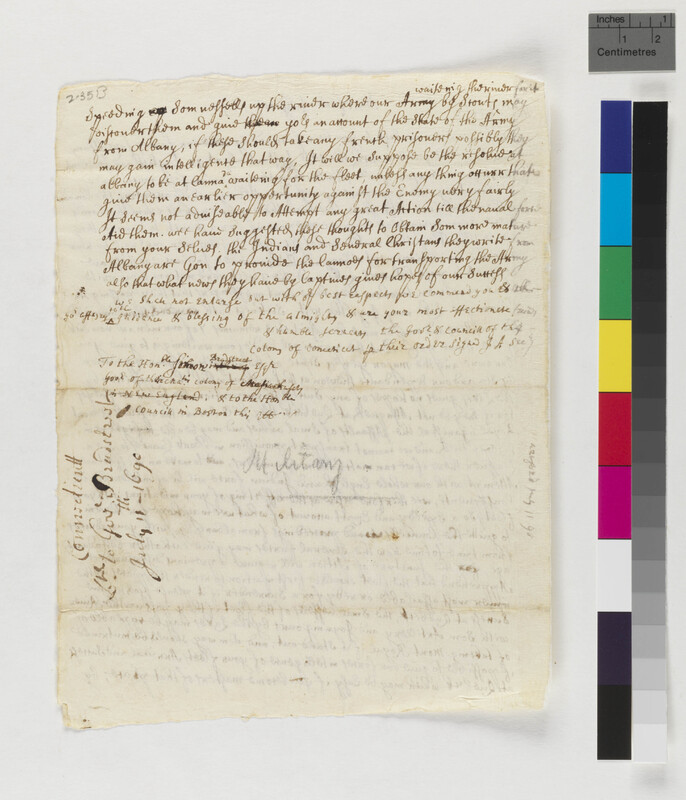 2-35B
waiteing the river
Speeding Som vessells up the river where our Army by Scouts may
discouer them and giue you an account of the State of the Army
from Albany, if these should take any french prisoners possibly they
may gain intelligence that way, It will we Suppose be the resolue at
albany to be at waiteing for the fleet unless any thing occurr that
giue them an earlier opportunity against the Enemy uery fairly
It Seems not adviseable to Attempt any great Action till the naual force
Aid them. wee haue Suggested these thoughts to obtain Som more mature
from your Selues. the Indians and Seueral Christians they write from
Albany are Gon to provide the Cannoes for transporting the Army
also that what news they haue by Captives giues hopes of our Success
we shall not enlarge but with or best respects for commend you to the
guidence & blessing of the almighty & are your most affectionate friends
& humble servants the Govr & councill of the
colony of Conecticut p their order signed J A Secy
To the Honble Simon Bradstreet Esqr
Govr of the colony of Massachusets
in New England, & to the Honble
Councill in Boston
Military
Connecticutt
Lre to Govr Bradstreet
July 11th 1690